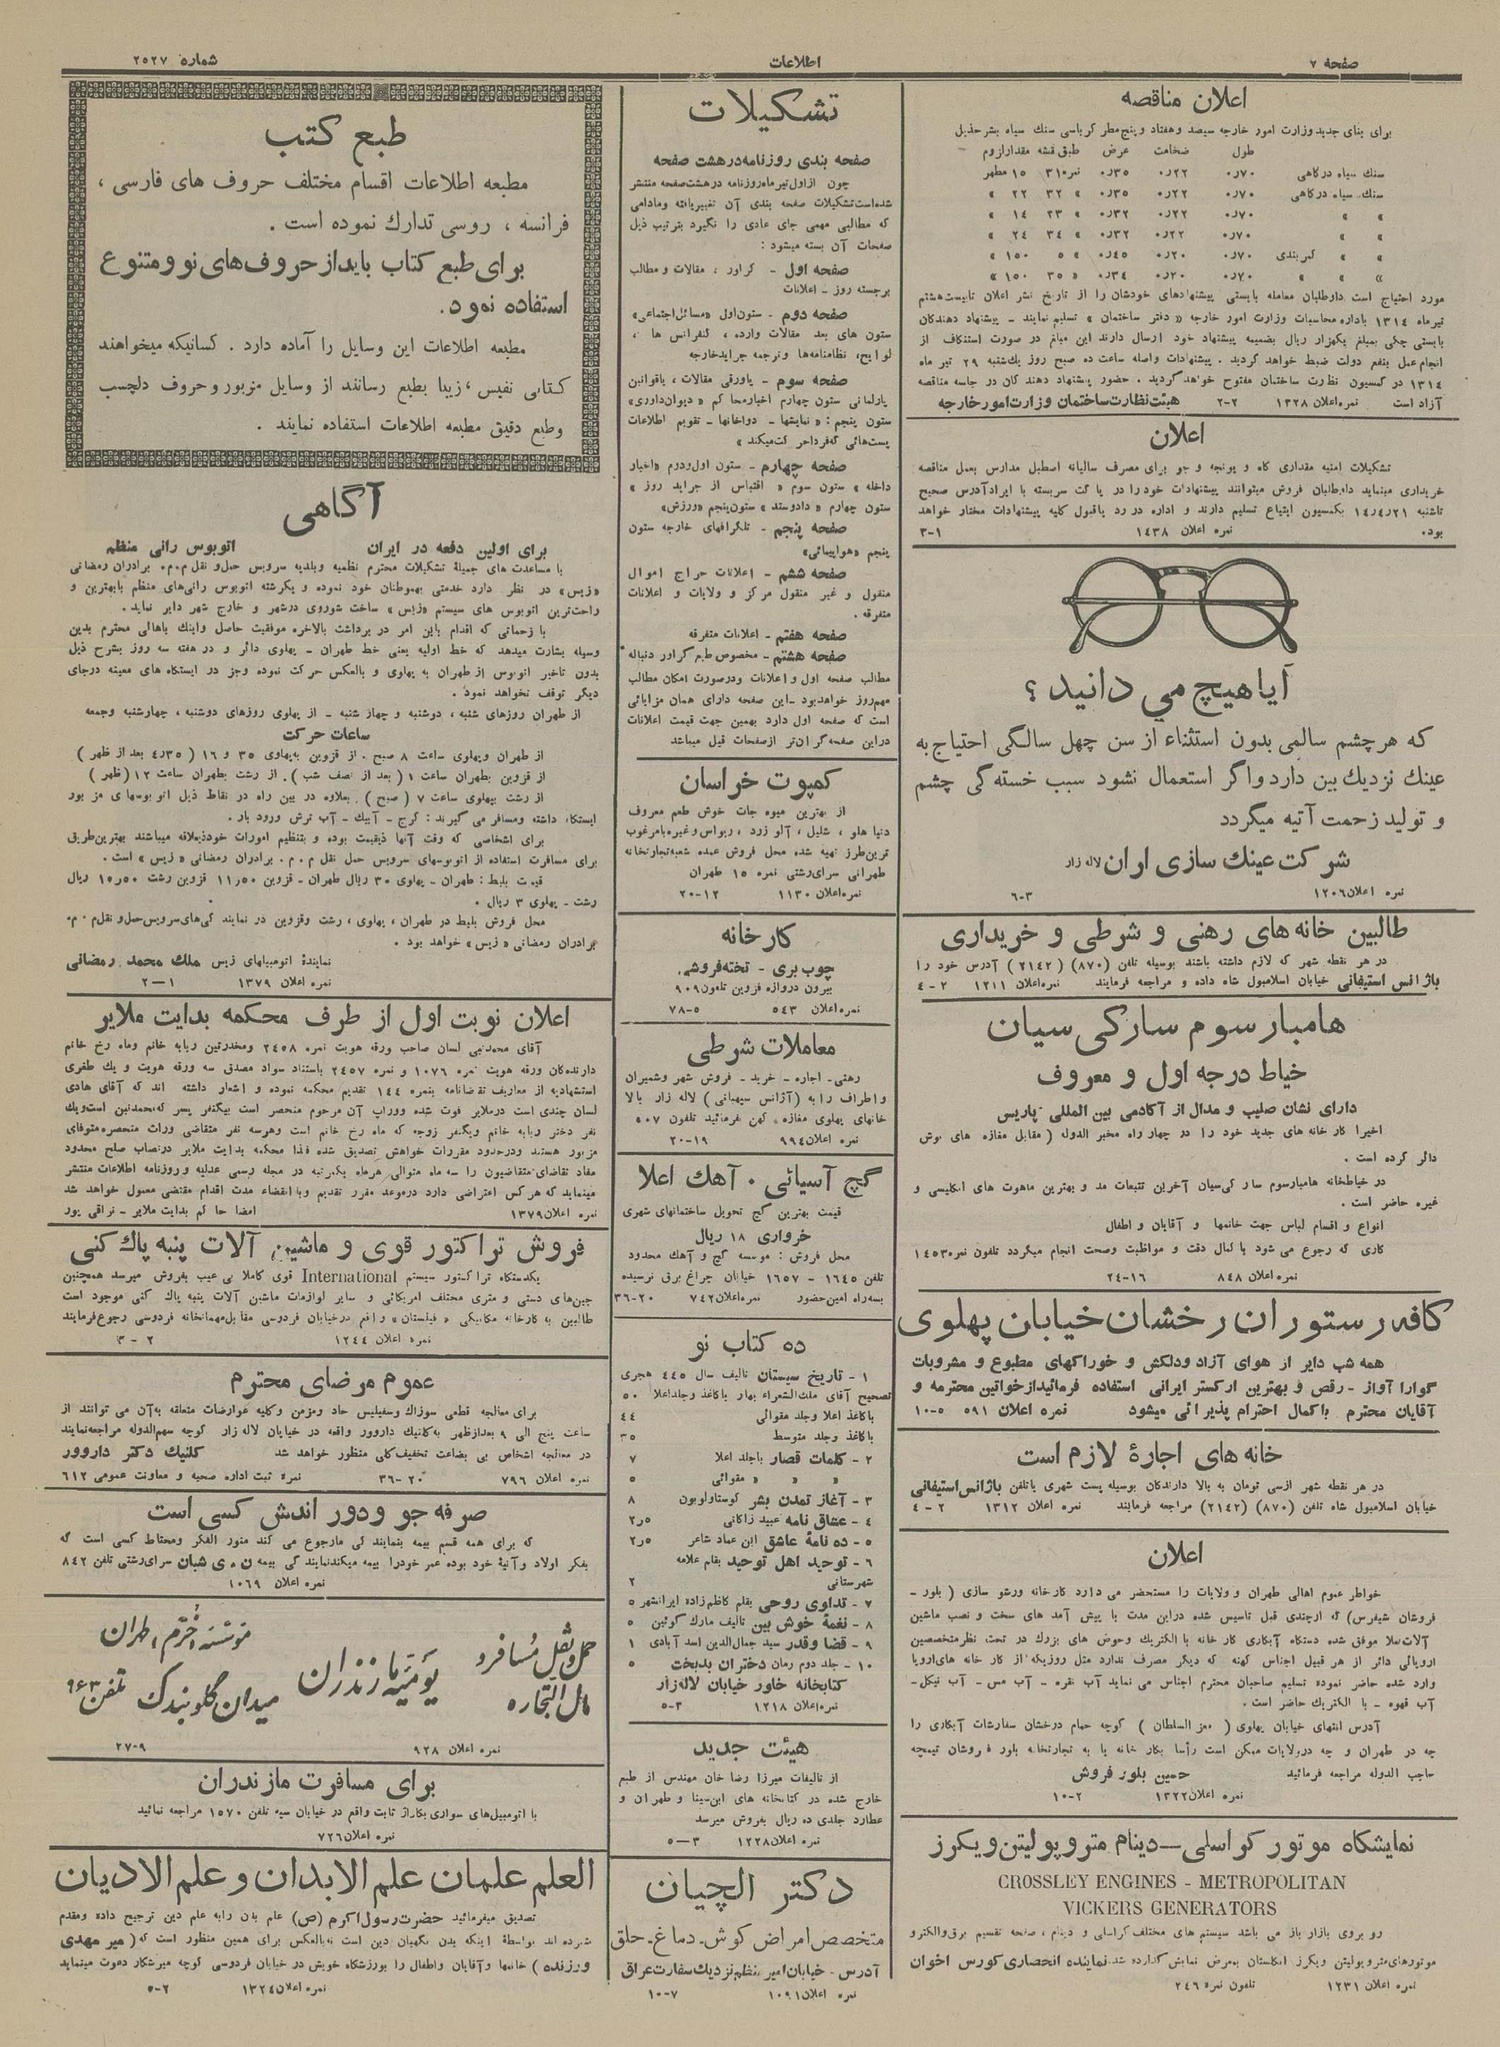 صفحه ۷
اطلاعات
شماره ۲۵۲۷
اعلان مناقصه
برای بنای جدید وزارت امور خارجه سیصد و هفتاد و پنج مطر کرباسی سنك سیاه بشرح ذیل
طول ضخامت عرض طبق قشه مقدار لزوم
سنك سیاه درکاهی ۰٫۷۰ ۰٫۲۲ ۰٫۳۵ نمره ۳۱ ۱۵ مطهر
سنك سیاه درکاهی ۰٫۷۰ ۰٫۲۲ ۰٫۳۵ » ۳۲ ۲۲ »
» » ۰٫۷۰ ۰٫۲۲ ۰٫۳۲ » ۲۳ ۱۴ »
» » ۰٫۷۰ ۰٫۲۲ ۰٫۳۲ » ۳۴ ۲۴ »
» » کمربندی ۰٫۷۰ ۰٫۲۰ ۰٫۴۵ » ۵ ۱۵۰ »
» » » ۰٫۷۰ ۰٫۲۰ ۰٫۳۴ » ۳۵ ۱۵۰ »
مورد احتیاج است داوطلبان معامله بایستی پیشنهادهای خودشان را از تاریخ نشر اعلان تابیست هشتم
تیرماه ۱۳۱۴ باداره محاسبات وزارت امور خارجه « دفتر ساختمان » تسلیم نمایند ـ پیشنهاد دهندکان
بایستی چکی بمبلغ یکهزار ریال بضمیمه پیشنهاد خود ارسال دارند این مبلغ در صورت استنکاف از
انجام عمل بنفع دولت ضبط خواهد گردید . پیشنهادات واصله ساعت ده صبح روز یکشنبه ۲۹ تیر ماه
۱۳۱۴ در کمسیون نظارت ساختمان مفتوح خواهد گردید . حضور پیشنهاد دهندکان در جلسه مناقصه
آزاد است نمره اعلان ۱۳۲۸ ۲-۲ هیئت نظارت ساختمان وزارت امور خارجه
اعلان
تشکیلات امنیه مقداری کاه و یونجه و جو برای مصرف سالیانه اصطبل مدارس بعمل مناقصه
خریداری مینماید داوطلبان فروش میتوانند پیشنهادات خود را در پاکت سربسته با ایراد آدرس صحیح
تاشنبه ۱۴٫۴٫۲۱ بکمسیون ابتیاع تسلیم دارند و اداره در رد یاقبول کلیه پیشنهادات مختار خواهد
بود. نمره اعلان ۱۴۳۸ ۳-۱
آیا هیچ می دانید ؟
که هر چشم سالمی بدون استثناء از سن چهل سالگی احتیاج به
عینك نزدیك بین دارد و اگر استعمال نشود سبب خسته گی چشم
و تولید زحمت آتیه میگردد
شرکت عینك سازی اران لاله زار
نمره اعلان ۱۲۰۶ ۶-۳
طالبین خانه های رهنی و شرطی و خریداری
در هر نقطه شهر که لازم داشته باشند بوسیله تلفن (۸۷۰) (۲۱۴۲) آدرس خود را
باژانس استیفانی خیابان اسلامبول شاه داده و مراجعه فرمایند نمره اعلان ۱۲۱۱ ۲-۴
هامبارسوم سارکی سیان
خیاط درجه اول و معروف
دارای نشان صلیب و مدال از آکادمی بین المللی پاریس
اخیرا کارخانه های جدید خود را در چهار راه مخبر الدوله ( مقابل مغازه های نوش
دائر کرده است .
در خیاطخانه هامبارسوم سارکیسیان آخرین تتبعات مد و بهترین ماهوت های انکلیسی و
غیره حاضر است .
انواع و اقسام لباس جهت خانمها و آقایان و اطفال
کاری که رجوع می شود با کمال دقت و مواظبت وصحت انجام میگردد تلفون نمره ۱۴۵۳
نمره اعلان ۸۴۸ ۲۴-۱۶
کافه رستوران رخشان خیابان پهلوی
همه شب دایر از هوای آزاد ودلکش و خوراکهای مطبوع و مشروبات
گوارا آواز - رقص و بهترین ارکستر ایرانی استفاده فرمائید از خواتین محترمه و
آقایان محترم باکمال احترام پذیرائی میشود نمره اعلان ۵۹۱ ۱۰-۵
خانه های اجارهٔ لازم است
در هر نقطه شهر ازسی تومان به بالا دارندکان بوسیله پست شهری یاتلفن باژانس استیفانی
خیابان اسلامبول شاه تلفن (۸۷۰) (۲۱۴۲) مراجعه فرمایند نمره اعلان ۱۳۱۲ ۲-۴
اعلان
خواطر عموم اهالی طهران و ولایات را مستحضر می دارد کارخانه ورشو سازی ( بلور ـ
فروشان شیفرس) که ازچندی قبل تاسیس شده دراین مدت با پیش آمد های سخت و نصب ماشین
آلات موفق شده دستگاه آبکاری کارخانه با الکتریك وحوض های بزرك در تحت نظر متخصصین
اروپائی دائر از هر قبیل اجناس کهنه که دیگر مصرف ندارد مثل روزیکه از کارخانه های اروپا
وارد شده حاضر نموده تسلیم صاحبان محترم اجناس می نماید آب نقره - آب مس - آب نیکل-
آب قهوه - با الکتریك حاضر است .
آدرس انتهای خیابان پهلوی ( معز السلطان ) کوچه حمام درخشان سفارشات آبکاری را
چه در طهران و چه در ولایات ممکن است رأسا بکار خانه یا به تجارتخانه بلور فروشان تیمچه
حاجب الدوله مراجعه فرمائید حسین بلور فروش
نمره اعلان ۱۳۲۲ ۱۰-۲
نمایشگاه موتور کراسلی—دینام مترو پولیتن ویکرز
CROSSLEY ENGINES - METROPOLITAN
VICKERS GENERATORS
رو بروی بازار باز می باشد سیستم های مختلف کراسلی و دینام ، صفحه تقسیم برق والکترو
موتورهای مترو پولیتن ویکرز انکلستان بمعرض نمایش گذارده شد. نماینده انحصاری کورس اخوان
نمره اعلان ۱۲۳۱ تلفون نمره ۲۴۶
تشکیلات
صفحه بندی روزنامه در هشت صفحه
چون از اول تیرماه روزنامه در هشت صفحه منتشر
شده است تشکیلات صفحه بندی آن تغییر یافته ومادامی
که مطالبی مهمی جای عادی را نگیرد بترتیب ذیل
صفحات آن بسته میشود:
صفحه اول - گراور ، مقالات و مطالب
برجسته روز - اعلانات
صفحه دوم - ستون اول «مسائل اجتماعی»
ستون های بعد مقالات وارده ، کنفرانس ها ،
لوایح، نظامنامه ها و ترجمه جراید خارجه
صفحه سوم - پاورقی مقالات، یاقوانین
پارلمانی ستون چهارم اخبار محاکم « دیوان داوری»
ستون پنجم : « نمایشها - دواخانها - تقویم اطلاعات
پست هائی که فردا حرکت میکند »
صفحه چهارم - ستون اول ودوم «اخبار
داخله » ستون سوم « اقتباس از جراید روز »
ستون چهارم « دادوستد » ستون پنجم «ورزش»
صفحه پنجم - تلگرافهای خارجه ستون
پنجم «هواپیمائی»
صفحه ششم - اعلانات حراج اموال
منقول و غیر منقول مرکز و ولایات و اعلانات
متفرقه .
صفحه هفتم - اعلانات متفرقه
صفحه هشتم - مخصوص طبع گراور دنباله
مطالب صفحه اول و اعلانات ودر صورت امکان مطالب
مهم روز خواهد بود - این صفحه دارای همان مزایائی
است که صفحه اول دارد بهمین جهت قیمت اعلانات
دراین صفحه گران تر از صفحات قبل میباشد
کمپوت خراسان
از بهترین میوه جات خوش طعم معروف
دنیا هلو ، شلیل ، آلو زرد ، ریواس و غیره بامرغوب
ترین طرز تهیه شده محل فروش عمده شعبه تجارتخانه
طهرانی سرای رشتی نمره ۱۵ طهران
نمره اعلان ۱۱۳۰ ۲۰-۱۲
کارخانه
چوب بری - تخته فروشی
بیرون دروازه قزوین تلفون ۹۰۹
نمره اعلان ۵۴۳ ۷۸-۵
معاملات شرطی
رهنی- اجاره - خرید - فروش شهر وشمیران
و اطراف را به (آژانس سپهبانی) لاله زار بالا
خانهای پهلوی مغازه کهن فرمائید تلفون ۵۰۷
نمره اعلان ۹۹۴ ۲۰-۱۹
گچ آسیائی . آهك اعلا
قیمت بهترین گچ تحویل ساختمانهای شهری
خرواری ۱۸ ریال
محل فروش : موسسه گچ و آهك محدود
تلفن ۱۶۴۵ - ۱۶۵۷ خیابان چراغ برق نرسیده
بسه راه امین حضور نمره اعلان ۷۴۲ ۳۶-۲۰
ده کتاب نو
۱ - تاریخ سیستان تالیف سال ٤٤٥ هجری
تصحیح آقای ملك الشعراء بهار باکاغذ وجلد اعلا ۵۰
باکاغذ اعلا وجلد مقوائی ٤٤
باکاغذ وجلد متوسط ۳۵
۲ - کلمات قصار باجلد اعلا ۷
» » » مقوائی ۵
۳ - آغاز تمدن بشر گوستاولوبون ۸
٤ - عشاق نامه عبید زاکانی ۲٫۵
۵ - ده نامهٔ عاشق ابن عماد شاعر ۲٫۵
۶ - توحید اهل توحید بقلم علامه
شهرستانی ۲
۷ - تداوی روحی بقلم کاظم زاده ایرانشهر ۵
۸ - نغمهٔ خوش بین تالیف مارك گوئین ۵
۹ - قضا وقدر سید جمال الدین اسد آبادی ۱
۱۰ - جلد دوم رمان دختران بدبخت ۵
کتابخانه خاور خیابان لاله زار
نمره اعلان ۱۲۱۸ ۵-۳
هیئت جدید
از تالیفات میرزا رضا خان مهندس از طبع
خارج شده در کتابخانه های ابن سینا و طهران و
عطارد جلدی ده ریال بفروش میرسد
نمره اعلان ۱۲۲۸ ۵—۳
دکتر الچیان
متخصص امراض گوش - دماغ - حلق
آدرس - خیابان امیر منظم نزدیك سفارت عراق
نمره اعلان ۱۰۹۱ ۱۰-۷
طبع کتب
مطبعه اطلاعات اقسام مختلف حروف های فارسی ،
فرانسه ، روسی تدارك نموده است .
برای طبع کتاب باید از حروف های نو و متنوع
استفاده نمود.
مطبعه اطلاعات این وسایل را آماده دارد . کسانیکه میخواهند
کتابی نفیس، زیبا بطبع رسانند از وسایل مزبور و حروف دلچسب
وطبع دقیق مطبعه اطلاعات استفاده نمایند .
آگاهی
برای اولین دفعه در ایران اتوبوس رانی منظم
با مساعدت های جمیلهٔ تشکیلات محترم نظمیه وبلدیه سرویس حمل و نقل م . م. برادران رمضانی
«زیس» در نظر دارد خدمتی بهموطنان خود نموده و یکرشته اتوبوس رانی های منظم بابهترین و
راحت ترین اتوبوس های سیستم «زیس» ساخت شوروی درشهر و خارج شهر دایر نماید .
با زحماتی که اقدام باین امر در برداشت بالاخره موفقیت حاصل واینك باهالی محترم بدین
وسیله بشارت میدهد که خط اولیه یعنی خط طهران - پهلوی دائر و در هفته سه روز بشرح ذیل
بدون تاخیر اتوبوس از طهران به پهلوی و بالعکس حرکت نموده وجز در ایستگاه های معینه درجای
دیگر توقف نخواهد نمود .
از طهران روزهای شنبه ، دوشنبه و چهار شنبه - از پهلوی روزهای دوشنبه ، چهارشنبه وجمعه
ساعات حرکت
از طهران وپهلوی ساعت ۸ صبح . از قزوین به پهلوی ۳۵ و ۱۶ ( ۴٫۳۵ بعد از ظهر )
از قزوین بطهران ساعت ۱ ( بعد از نصف شب ) . از رشت بطهران ساعت ۱۲ ( ظهر )
از رشت بپهلوی ساعت ۷ ( صبح ) . بعلاوه در بین راه در نقاط ذیل اتوبوسهای مزبور
ایستگاه داشته ومسافر می گیرند : کرج - آبیك - آب ترش ورود بار .
برای اشخاصی که وقت آنها ذیقیمت بوده و بتنظیم امورات خود ذیعلاقه میباشند بهترین طریق
برای مسافرت استفاده از اتوبوسهای سرویس حمل نقل م . م . برادران رمضانی « زیس » است .
قیمت بلیط : طهران - پهلوی ۳۰ ریال طهران - قزوین ۱۱٫۵۰ قزوین رشت ۱۵٫۵۰ ریال
رشت - پهلوی ۳ ریال .
محل فروش بلیط در طهران ، پهلوی ، رشت وقزوین در نمایندگی های سرویس حمل و نقل م . م.
برادران رمضانی « زیس » خواهد بود .
نمایندهٔ اتومبیلهای زیس ملك محمد رمضانی
نمره اعلان ۱۳۷۹ ۲—۱
اعلان نوبت اول از طرف محکمه بدایت ملایر
آقای محمدتقی لسان صاحب ورقه هویت نمره ۲۴۵۸ ومخدرتین ربابه خانم وماه رخ خانم
دارندکان ورقه هویت نمره ۱۰۷۶ و نمره ۲۴۵۷ باستناد سواد مصدق سه ورقه هویت و یك طغری
استشهادیه از معاریف تقاضانامه بنمره ۱۴۴ تقدیم محکمه نموده و اشعار داشته اند که آقای هادی
لسان چندی است درملایر فوت شده ووراث آن مرحوم منحصر است بیکنفر پسر که محمدتقی است ویك
نفر دختر ربابه خانم ویکنفر زوجه که ماه رخ خانم است وهرسه نفر متقاضی وراث منحصره متوفای
مزبور هستند ودرحدود مقررات خواهش تصدیق شده فلذا محکمه بدایت ملایر درنصاب صلح محدود
مفاد تقاضای متقاضیون را سه ماه متوالی هرماه یکمرتبه در مجله رسمی عدلیه و روزنامه اطلاعات منتشر
مینماید که هر کس اعتراضی دارد درموعد مقرر تقدیم وبا انقضاء مدت اقدام مقتضی معمول خواهد شد
نمره اعلان ۱۳۷۹ امضا حاکم بدایت ملایر - نراقی پور
فروش تراکتور قوی و ماشین آلات پنبه پاك کنی
یکدستگاه تراکتور سیستم International قوی کاملا بی عیب بفروش میرسد همچنین
جین های دستی و متری مختلف امریکائی و سایر لوازمات ماشین آلات پنبه پاك کنی موجود است
طالبین به کارخانه مکانیکی « فیلستان » واقع درخیابان فردوسی مقابل مهمانخانه فردوسی رجوع فرمایند
نمره اعلان ۱۲۴۴ ۲ - ۳
عموم مرضای محترم
برای معالجه قطعی سوزاك وسفیلیس حاد ومزمن وکلیه عوارضات متعلقه به آن می توانند از
ساعت پنج الی ۹ بعدازظهر به کلنیك داروور واقعه در خیابان لاله زار کوچه سهم الدوله مراجعه نمایند
در معالجه اشخاص بی بضاعت تخفیف کلی منظور خواهد شد کلنیك دکتر داروور
نمره اعلان ۷۹۶ ۳۶-۲۰ نمره ثبت اداره صحیه و معاونت عمومی ۶۱۲
صرفه جو ودور اندش کسی است
که برای همه قسم بیمه بنمایندگی مارجوع می کند منور الفکر ومحتاط کسی است که
بفکر اولاد و آتیهٔ خود بوده عمر خودرا بیمه میکند نمایندگی بیمه ن . ی شبان سرای رشتی تلفن ۸۴۲
نمره اعلان ۱۰۶۹
حمل و نقل مسافر و
مال التجاره
یومیه مازندران
موسسه احترم طهران
میدان گلوبندک تلفن ۹۶۳
نمره اعلان ۹۲۸ ۲۷-۹
برای مسافرت مازندران
با اتومبیل های سواری بکاراژ ثابت واقع در خیابان سپه تلفن ۱۵۷۰ مراجعه نمائید
نمره اعلان ۷۲۶
العلم علمان علم الابدان و علم الادیان
تصدیق میفرمائید حضرت رسول اکرم (ص) علم بدن رابه علم دین ترجیح داده ومقدم
شمرده اند بواسطهٔ اینکه بدن نگهبان دین است نه بالعکس برای همین منظور است که ( میر مهدی
ورزنده ) خانمها و آقایان واطفال را بورزشگاه خویش در خیابان فردوسی کوچه میرشکار دعوت مینماید
نمره اعلان ۱۳۲۴ ۵-۲